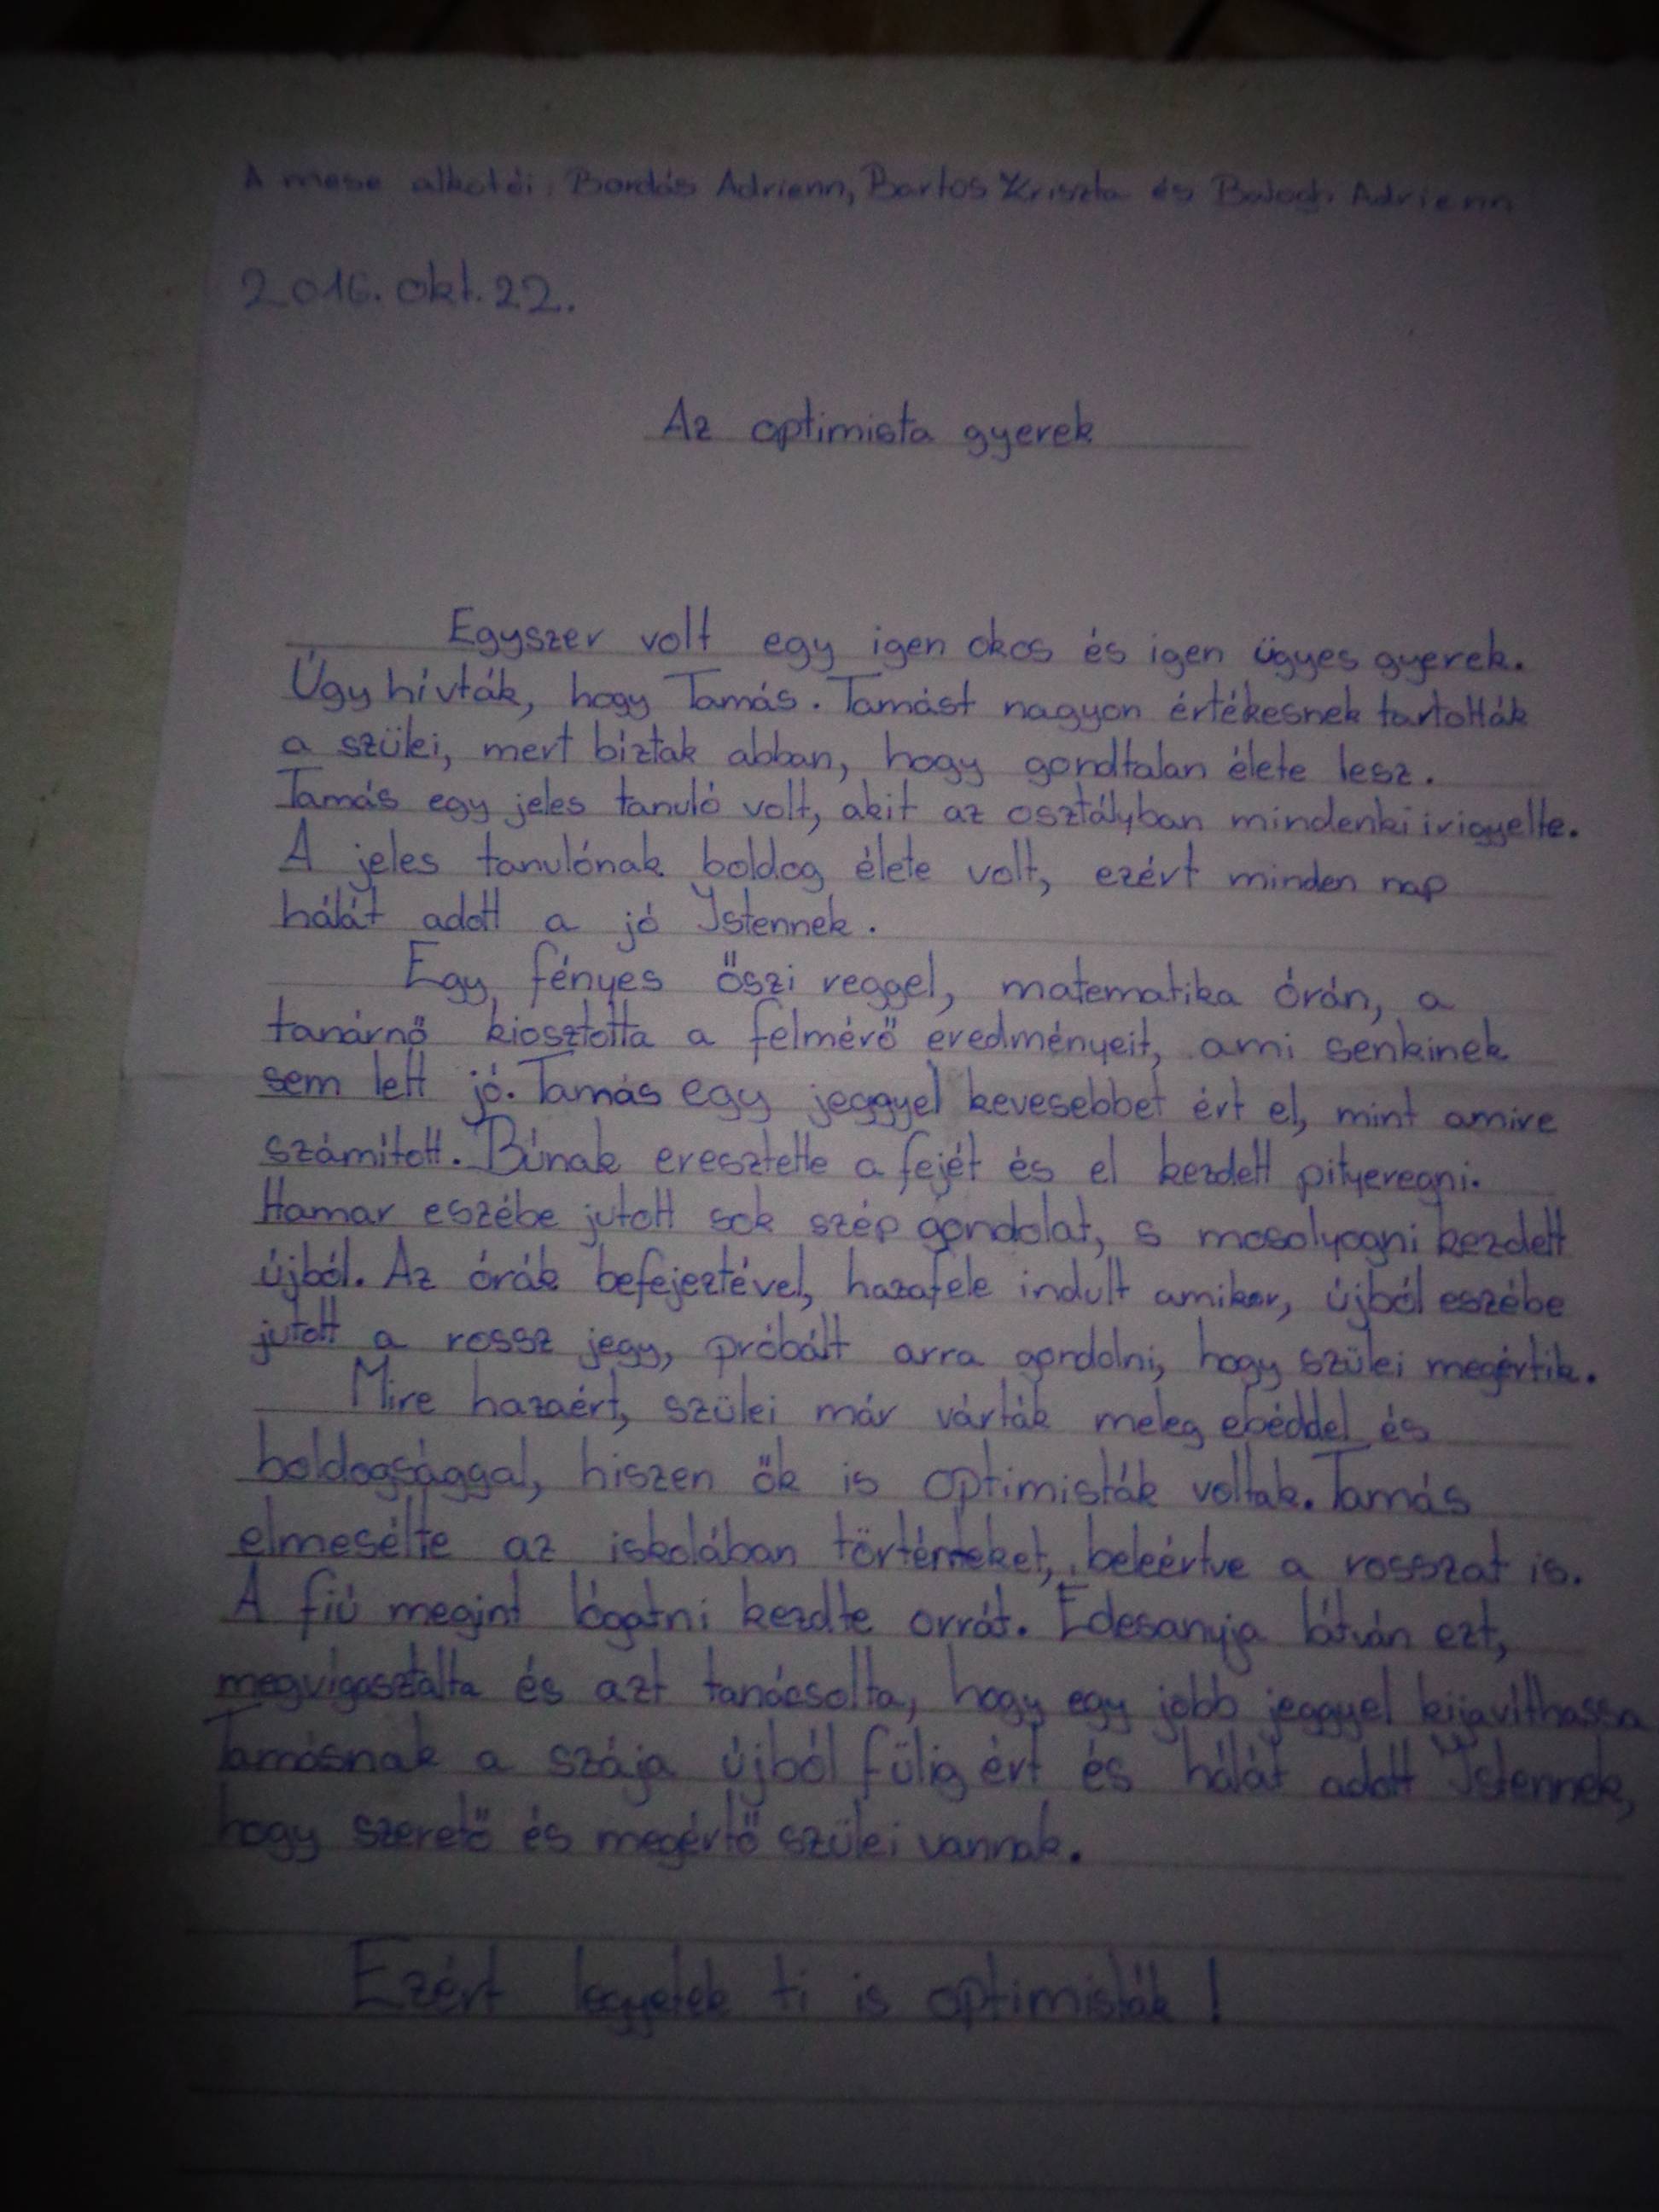 A mese alkotói: Bordás Adrienn, Bartos Kriszta és Balogh Adrienn
2016. okt. 22.
Az optimista gyerek
Egyszer volt egy igen okos és igen ügyes gyerek.
Úgy hívták, hogy Tamás. Tamást nagyon értékesnek tartották
a szülei, mert bíztak abban, hogy gondtalan élete lesz.
Tamás egy jeles tanuló volt, akit az osztályban mindenki irigyelte.
A jeles tanulónak boldog élete volt, ezért minden nap
hálát adott a jó Istennek.
Egy fényes őszi reggel, matematika órán, a
tanárnő kiosztotta a felmérő eredményeit, ami senkinek
sem lett jó. Tamás egy jeggyel kevesebbet ért el, mint amire
számított. Búnak eresztette a fejét és el kezdett pityeregni.
Hamar eszébe jutott sok szép gondolat, s mosolyogni kezdett
újból. Az órák befejeztével, hazafele indult amikor, újból eszébe
jutott a rossz jegy, próbált arra gondolni, hogy szülei megértik.
Mire hazaért, szülei már várták meleg ebéddel és
boldogsággal, hiszen ők is optimisták voltak. Tamás
elmesélte az iskolában történteket, beleértve a rosszat is.
A fiú megint lógatni kezdte orrát. Édesanyja látván ezt,
megvigasztalta és azt tanácsolta, hogy egy jobb jeggyel kijavíthassa
Tamásnak a szája újból fülig ért és hálát adott Istennek,
hogy szerető és megértő szülei vannak.
Ezért legyetek ti is optimisták!